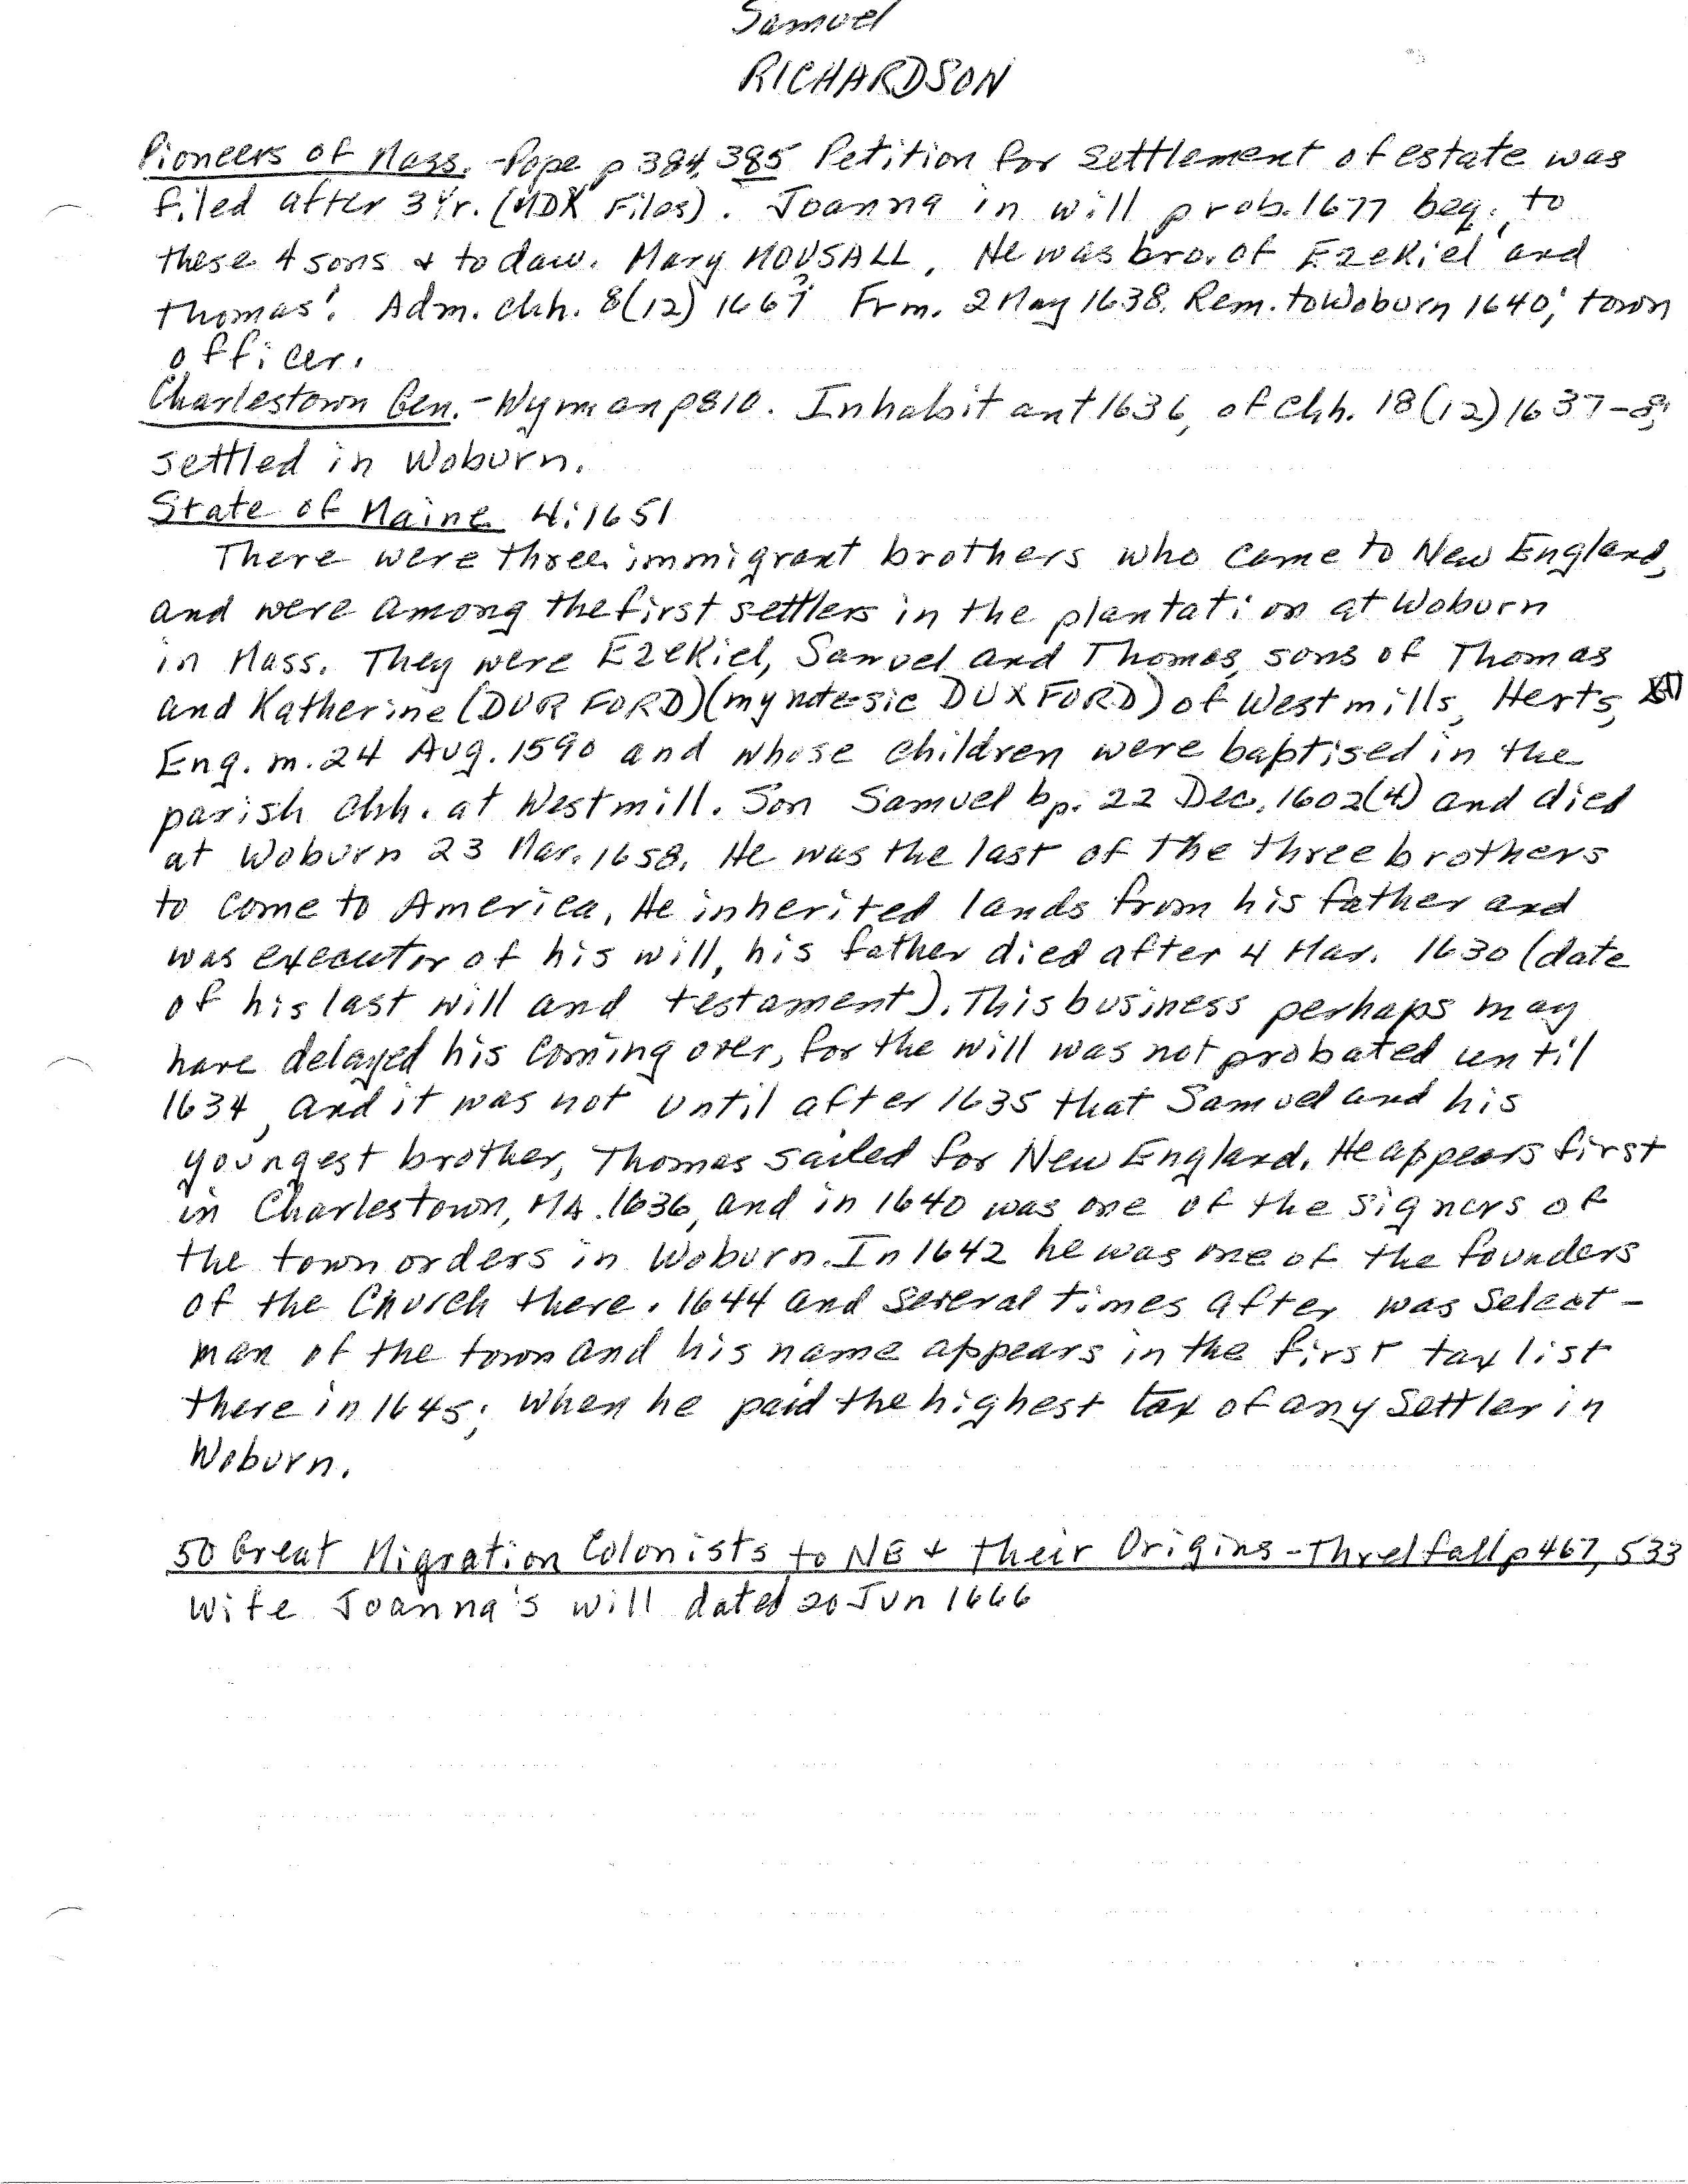 Samuel
RICHARDSON
Pioneers of Mass. -Pope p 384, 385 Petition for settlement of estate was
filed after 3 Yr. (MDX Files). Joanna in will prob. 1677 beq. to
these 4 sons & to dau. Mary MOUSALL. He was bro. of Ezekiel and
Thomas. Adm. chh. 8(12) 1667? Frm. 2 May 1638. Rem. to Woburn 1640; town
officer.
Charlestown Gen. - Wyman p810. Inhabitant 1636, of Chh. 18(12)1637-8;
settled in Woburn.
State of Maine 4:1651
There were three immigrant brothers who came to New England,
and were among the first settlers in the plantation at Woburn
in Mass. They were Ezekiel, Samuel and Thomas, sons of Thomas
and Katherine (DURFORD) (my note-sic DUXFORD) of Westmills, Herts,
Eng. m. 24 Aug. 1590 and whose children were baptised in the
parish chh. at Westmill. Son Samuel bp. 22 Dec. 1602(4) and died
at Woburn 23 Mar. 1658. He was the last of the three brothers
to come to America. He inherited lands from his father and
was executor of his will, his father died after 4 Mar. 1630 (date
of his last will and testament). This business perhaps may
have delayed his coming over, for the will was not probated until
1634, and it was not until after 1635 that Samuel and his
youngest brother, Thomas sailed for New England. He appears first
in Charlestown, MA. 1636, and in 1640 was one of the signers of
the town orders in Woburn. In 1642 he was one of the founders
of the Church there. 1644 and several times after was Select-
man of the town and his name appears in the first tax list
there in 1645; when he paid the highest tax of any Settler in
Woburn.
50 Great Migration Colonists to NE & their Origins - Threlfall p 467, 533
Wife Joanna's will dated 20 Jun 1666